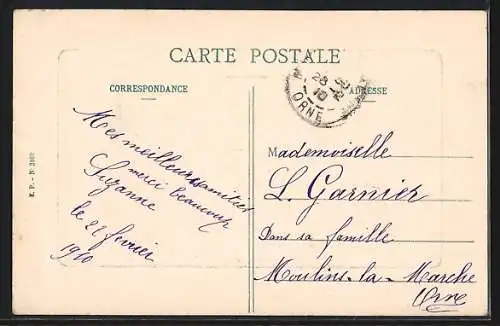 CARTE POSTALE
CORRESPONDANCE
ADRESSE
Mes meilleures amitiés
merci beaucoup
Suzanne
le 28 février
1910
Mademoiselle
L. Garnier
Dans sa famille
Moulins-la-Marche
Orne
28
10
ORNE
E. P. - N°